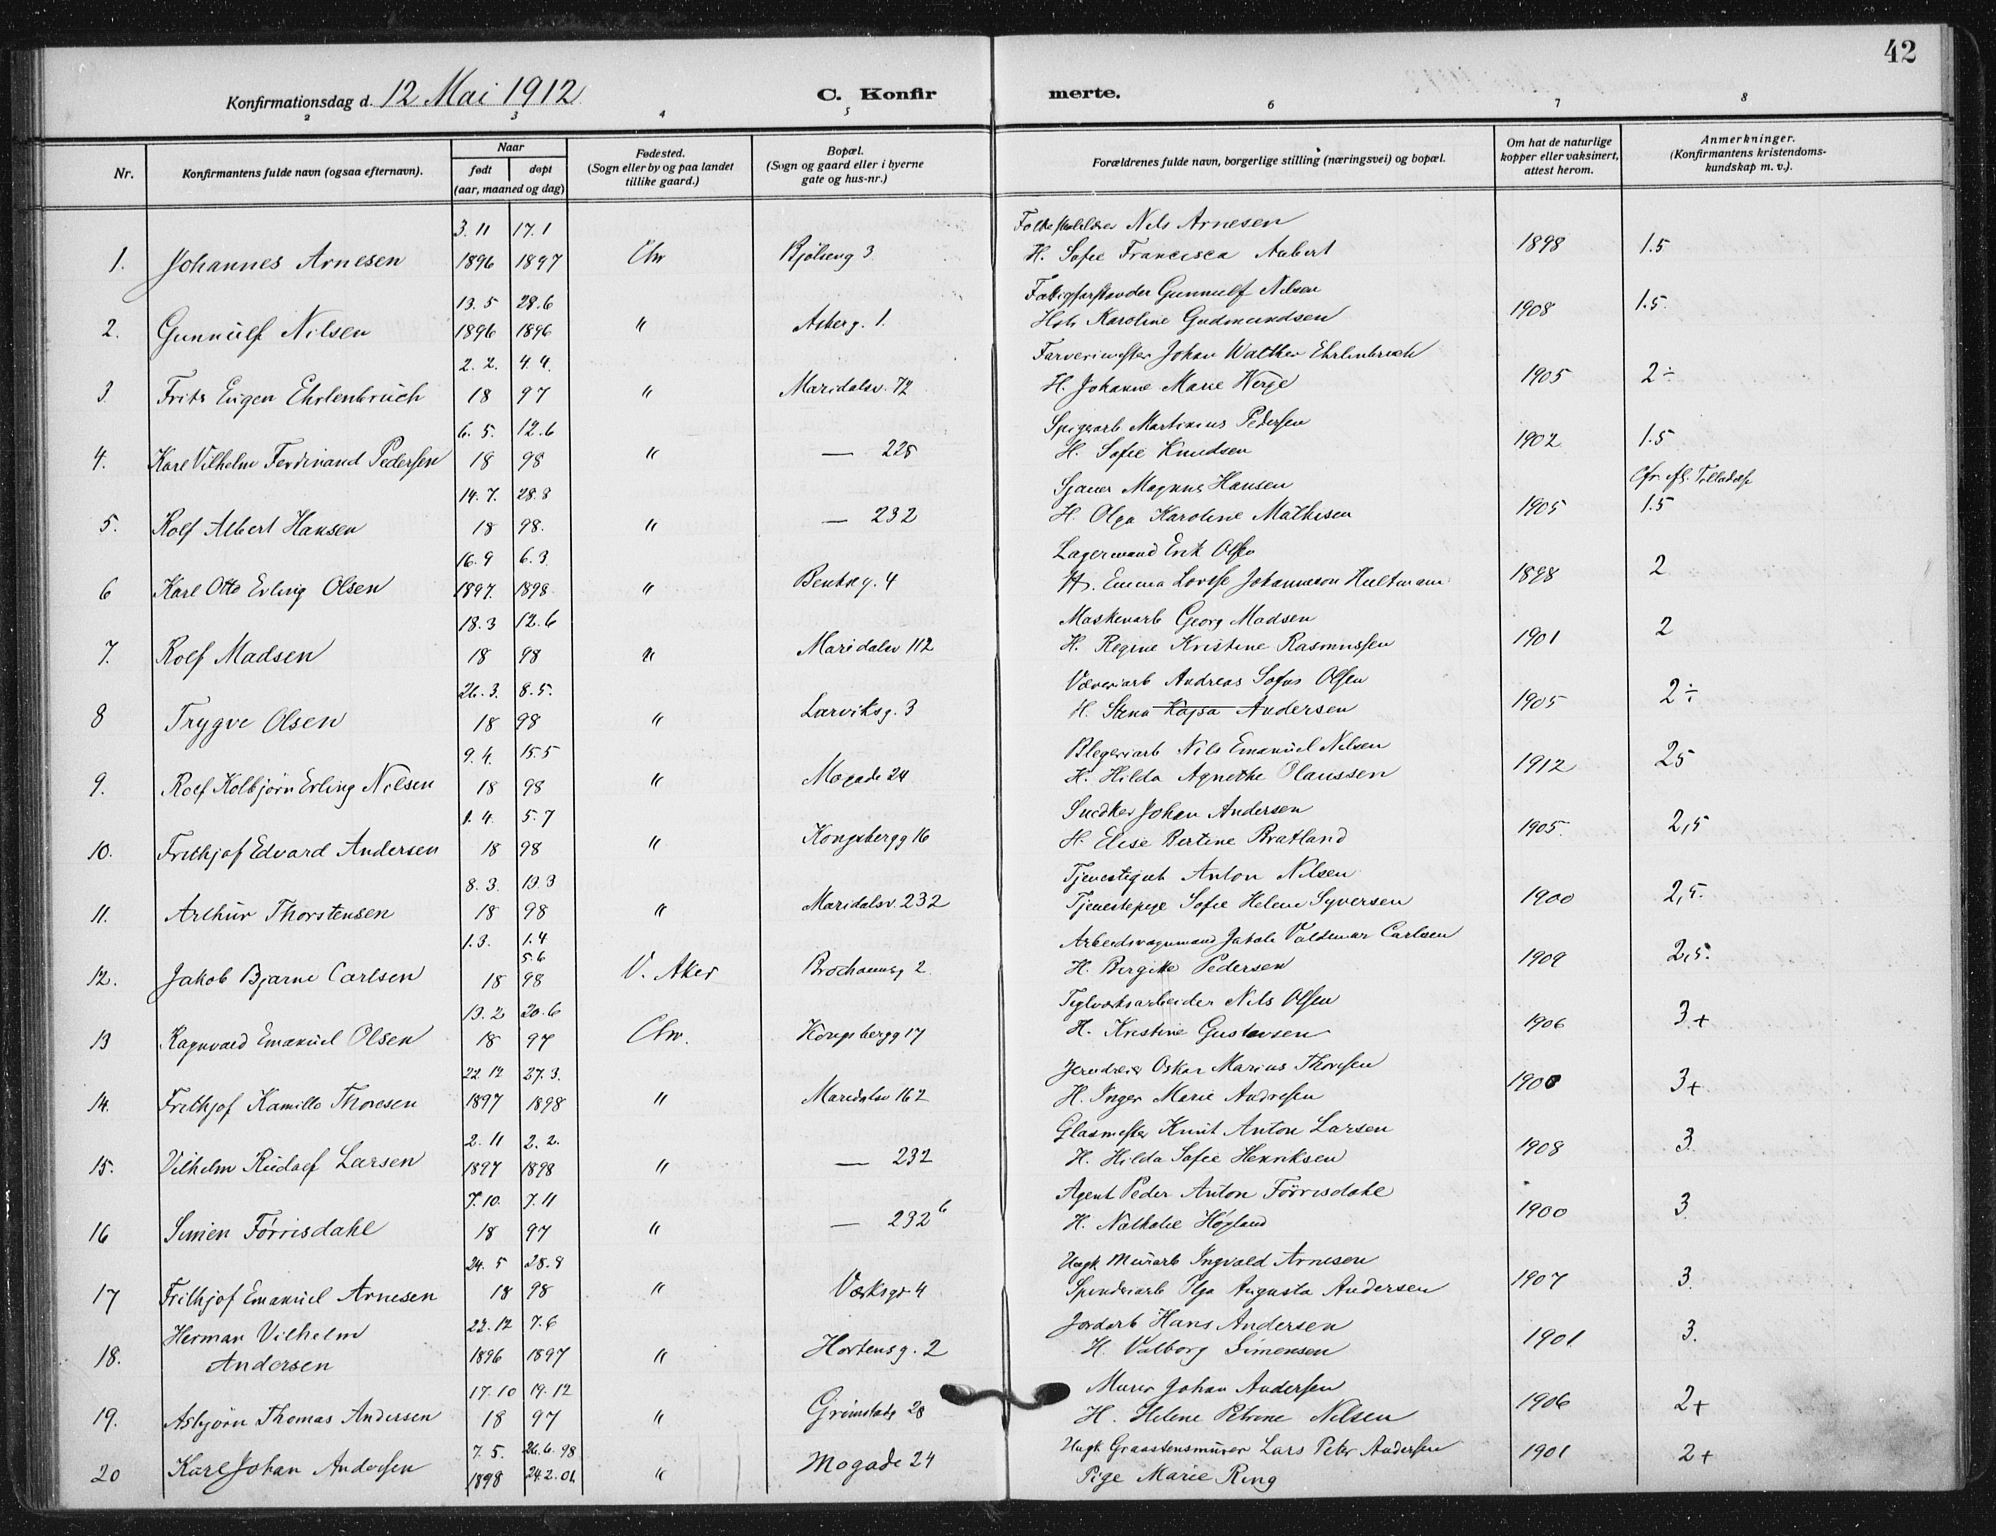 42
Konfirmationsdag d. 12 Mai 1912 C. Konfir merte.
2 3 4 5 6 7 8
Nr. Konfirmantens fulde navn (ogsaa efternavn). Naar født døpt (aar, maaned og dag) Fødested. (Sogn eller by og paa landet tillike gaard.) Bopæl. (Sogn og gaard eller i byerne gate og hus-nr.) Forældrenes fulde navn, borgerlige stilling (næringsvei) og bopæl. Om hat de naturlige kopper eller vaksinert, attest herom. Anmerkninger. (Konfirmantens kristendoms- kundskap m. v.).
3.11 17.1 Nils Arnesen
1. Johannes Arnesen 1896 1897 Chr Bjølseng 3 H. Sofie Francisca Aubert 1898 1.5
13.5 28.6 Fattigforstander Gunnulf Nilsen
2. Gunnulf Nilsen 1896 1896 " Asberg. 1. Karoline Gudmundsen 1908 1.5
2.2. 4.4. Farverimester Johan Walther Ehrlenbruch
3. Frits Eugen Ehrlenbruch 18 97 " Maridalsv. 72 H. Johanne Marie Werge 1905 2÷
6.5. 12.6 Spigerarb Martinius Pedersen
4. Karl Vilhelm Ferdinand Pedersen 18 98 " — 225 H. Sofie Knudsen 1902 1.5
14.7. 28.8 Sjauer Magnus Hansen
5. Rolf Albert Hansen 18 98. " — 232 H. Olga Karoline Mathisen 1905 1.5
16.9 6.3. Lagermand Erik Olsen
6 Karl Otto Erling Olsen 1897. 1898 " Bentseg. 4 H. Emma Lovise Johannesson Hultmann 1898 2
18.3 12.6 Maskenarb Georg Madsen
7. Rolf Madsen 18 98 " Maridalsv 112 H. Regine Kristine Rasmussen 1901 2
26.3. 8.5. Væveriarb Andreas Sofus Olsen
8 Trygve Olsen 18 98 " Larviksg. 3 H. Stina Kajsa Andersen 1905 2÷
9.4. 15.5 Blegeriarb Nils Emanuel Nilsen
9. Rolf Kolbjørn Erling Nilsen 18 98 " Mogade 24 H. Hilda Agnethe Olaussen 1912 25
1.4. 5.7 Snedker Johan Andersen
10. Frithjof Edvard Andersen 18 98 " Kongsbergg 16 H. Elise Bertine Bratland 1905. 2,5
8.3. 13.3 Tjenestegut Anton Nilsen
11. Arthur Thorstensen 18 98 " Maridalsv. 232 Tjenestepige Sofie Helene Syversen 1900 2,5.
1.3. 1.4 5.6 Arbeidsvognmand Jakob Valdemar Carlsen
12. Jakob Bjarne Carlsen 18 98 V. Aker 2. H. Birgitte Pedersen 1909 2,5.
13.2 20.6 Teglverksarbeider Nils Olsen
13 Ragnvald Emanuel Olsen 18 97 Chr. Kongsbergg 17 H. Kristine Gustavsen 1906 3+
22.12 27.3. Jerndreier Oskar Marius Thoresen
14. Frithjof Kamillo Thoresen 1897 1898 " Maridalsv 162 H. Inger Marie Andresen 1900 3+
2.11 2.2. Glasmester Knut Anton Larsen
15. Vilhelm Rudolf Larsen 1897 1898 " — 232 H. Hilda Sofie Henriksen 1908 3
7.10. 7.11 Agent Peder Anton Førrisdahl
16 Simen Førrisdahl 18 97 " — 232 6 H. Nathalie Høgland 1900 3
24.5 28.8 Ungk. Murarb Ingvald Arnesen
17 Frithjof Emanuel Arnesen 18 98 " Verksgt 4 Spinderiarb Olga Augusta Andersen 1907 3.
Herman Vilhelm 22.12 7.6 Jordarb Hans Andersen
18. Andersen 1896 1897 " Hortensg. 2 H. Valborg Simensen 1901 3.
17.10 19.12 Murer Johan Andersen
19. Asbjørn Thomas Andersen 18 97 " Grimstadg 28 H. Helene Petrine Nilsen 1906 2+
7.5. 26.6.98 Ungk Graastensmurer Lars Peter Andersen
20 Karl Johan Andersen 1898 24.2.01 " Mogade 24 Pige Marie Ring 1901 2+